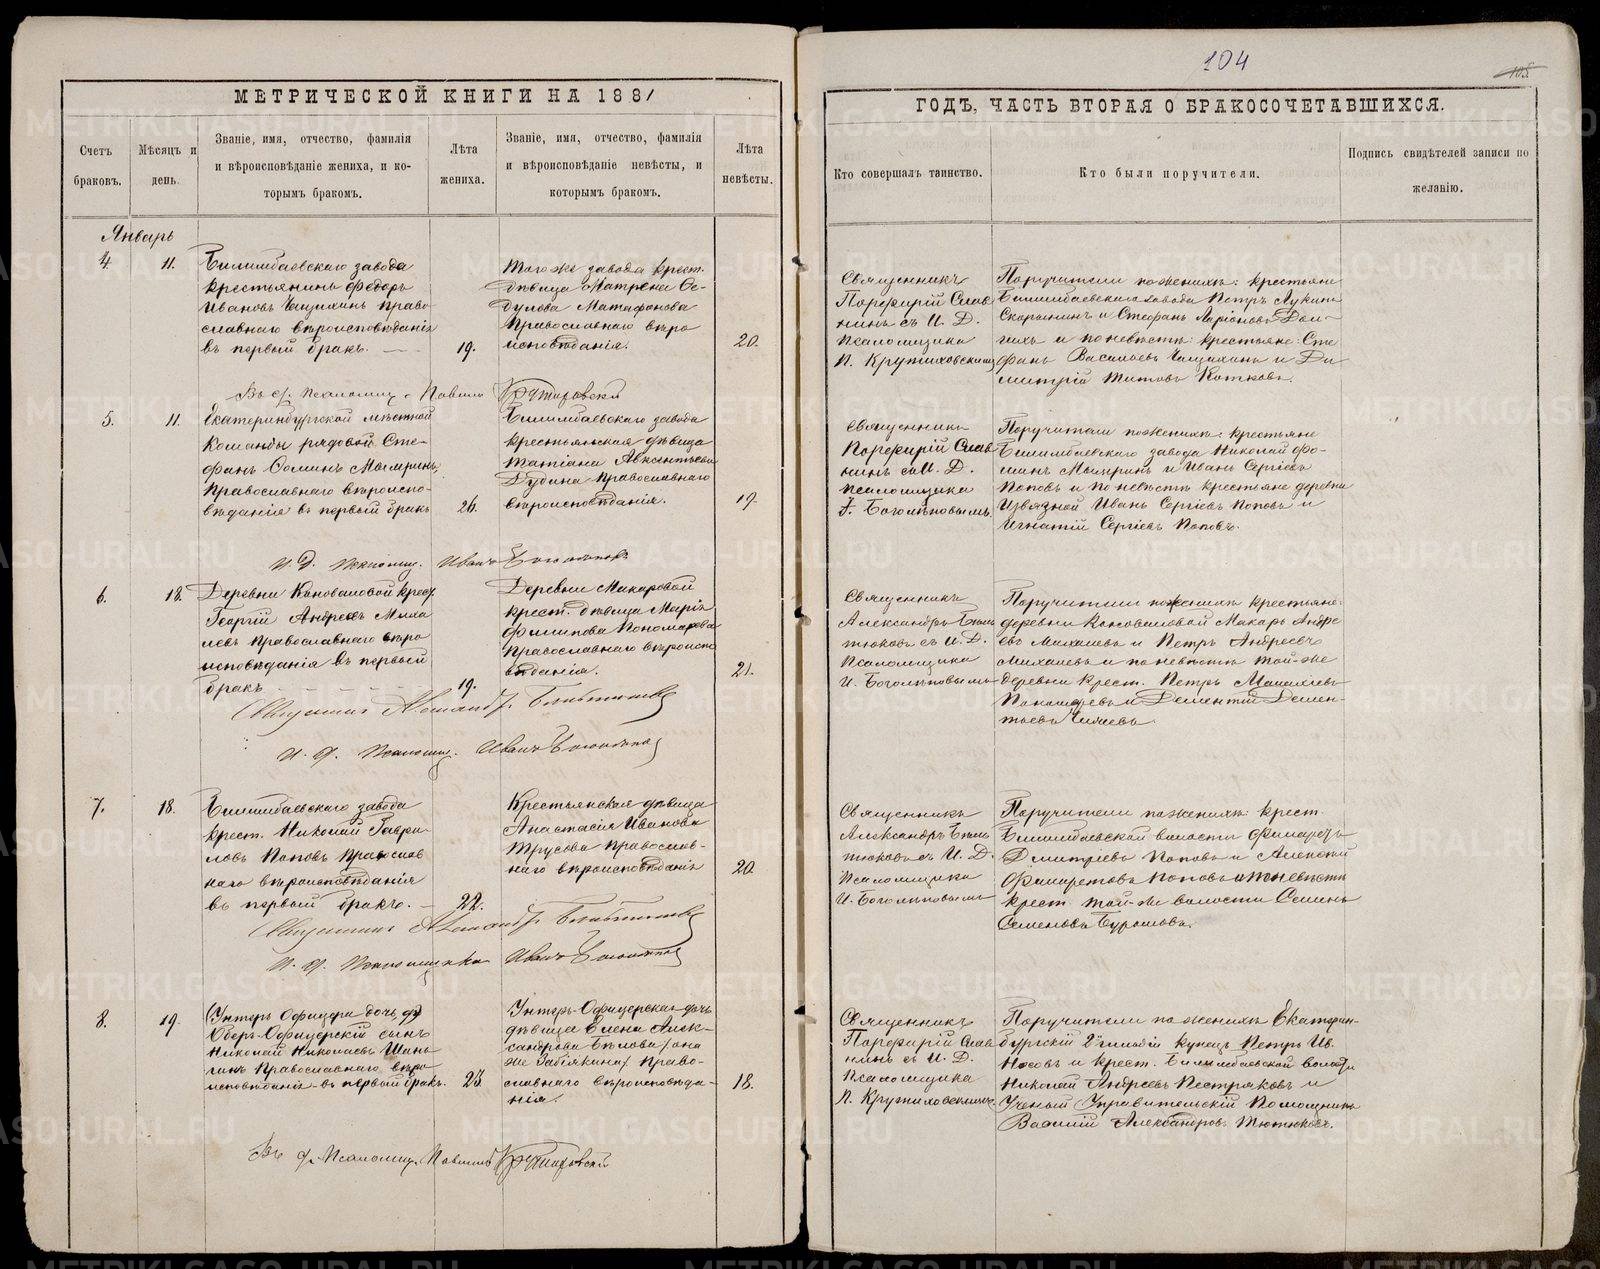 104
105
МЕТРИЧЕСКОЙ КНИГИ НА 1881
ГОДЪ, ЧАСТЬ ВТОРАЯ О БРАКОСОЧЕТАВШИХСЯ.
Счетъ браковъ.
Мѣсяцъ и день.
Званіе, имя, отчество, фамилія
и вѣроисповѣданіе жениха, и ко-
торымъ бракомъ.
Лѣта жениха.
Званіе, имя, отчество, фамилія
и вѣроисповѣданіе невѣсты, и
которымъ бракомъ.
Лѣта невѣсты.
Кто совершалъ таинство.
Кто были поручители.
Подпись свидѣтелей записи по
желанію.
Январь
4.
11.
Билимбаевскаго завода
крестьянинъ Ѳедоръ
Ивановъ Чащихинъ право
славнаго вѣроисповѣданія
въ первый бракъ.
19.
Того же завода крест.
дѣвица Матрена Ѳе-
дулова Матафонова
Православнаго вѣро
исповѣданія.
20.
Священникъ
Порфирій Слав
нинъ съ И. Д.
псаломщика
П. Крутиховскимъ
Поручители по женихѣ: крестьяне
Билимбаевскаго завода Петръ Лукинъ
Скорынинъ и Стефанъ Ларіоновъ Дол-
гихъ и по невѣстѣ: крестьяне: Сте
фанъ Васильевъ Чащихинъ и Ди
митрій Титовъ Котковъ.
Павелъ Крутиховскій
5.
11.
Екатеринбургской мѣстной
Команды рядовой Сте-
фанъ Ѳоминъ Мымринъ
Православнаго вѣроиспо-
вѣданія въ первый бракъ
26.
Билимбаевскаго завода
крестьянская дѣвица
Татіана Авксентьева
Дубина Православнаго
вѣроисповѣданія.
19.
Священникъ
Порфирій Слав
нинъ съ И. Д.
псаломщика
И. Боголѣповымъ
Поручители по женихѣ: крестьяне
Билимбаевскаго завода Николай Ѳо-
минъ Мымринъ и Иванъ Сергѣевъ
Поповъ и по невѣстѣ крестьяне деревни
Извязной Иванъ Сергѣевъ Поповъ и
Игнатій Сергѣевъ Поповъ.
И. Д. Псаломщ. Иванъ Боголѣповъ
6.
18.
Деревни Коноваловой крест.
Георгій Андреевъ Миха
левъ Православнаго вѣро
исповѣданія въ первый
бракъ
19.
Деревни Макаровой
крест. дѣвица Марія
Филипова Пономарева
Православнаго вѣроиспо
вѣданія.
21.
Священникъ
Александръ Бѣль
тюковъ съ И. Д.
Псаломщика
И. Боголѣповымъ
Поручители по женихѣ крестьяне:
деревни Коноваловой Макаръ Андре
евъ Михалевъ и Петръ Андреевъ
Михалевъ и по невѣстѣ той-же
деревни крест. Петръ
и Дементій Демен-
тьевъ
Священникъ Александръ Бѣльтюковъ
И. Д. Псаломщ. Иванъ Боголѣповъ
7.
18.
Билимбаевскаго завода
крест. Николай Гаври-
ловъ Поповъ Православ
наго вѣроисповѣданія
въ первый бракъ.
22.
Крестьянская дѣвица
Анастасія Иванова
Трусова Православ-
наго вѣроисповѣданія
20.
Священникъ
Александръ Бѣль
тюковъ съ И. Д.
Псаломщика
И. Боголѣповымъ
Поручители по женихѣ: крест
Билимбаевской волости Филаретъ
Дмитріевъ Поповъ и Алексѣй
Филаретовъ Поповъ и по невѣстѣ
крест. той-же волости Семенъ
Семеновъ Бурашовъ.
Священникъ Александръ Бѣльтюковъ
И. Д. Псаломщика Иванъ Боголѣповъ
8.
19.
(Унтеръ Офицера дочь дѣ)
Оберъ-Офицерскій сынъ
Николай Николаевъ Шань
гинъ Православнаго вѣро
исповѣданія въ первый бракъ.
23.
Унтеръ-Офицерская дочь
дѣвица Елена Алек-
сандрова Бѣлова /она
же Забіякина/ Право-
славнаго вѣроисповѣда-
нія.
18.
Священникъ
Порфирій Слав
нинъ съ И. Д.
Псаломщика
П. Крутиховскимъ
Поручители по женихѣ Екатерин-
бургскій 2й гильдіи купецъ Петръ Ив.
Носовъ и крест. Билимбаевской волости
Николай Андреевъ Пестряковъ и
Ученый Управительскій Помощникъ
Василій Александровъ Тютюковъ.
Павелъ Крутиховскій